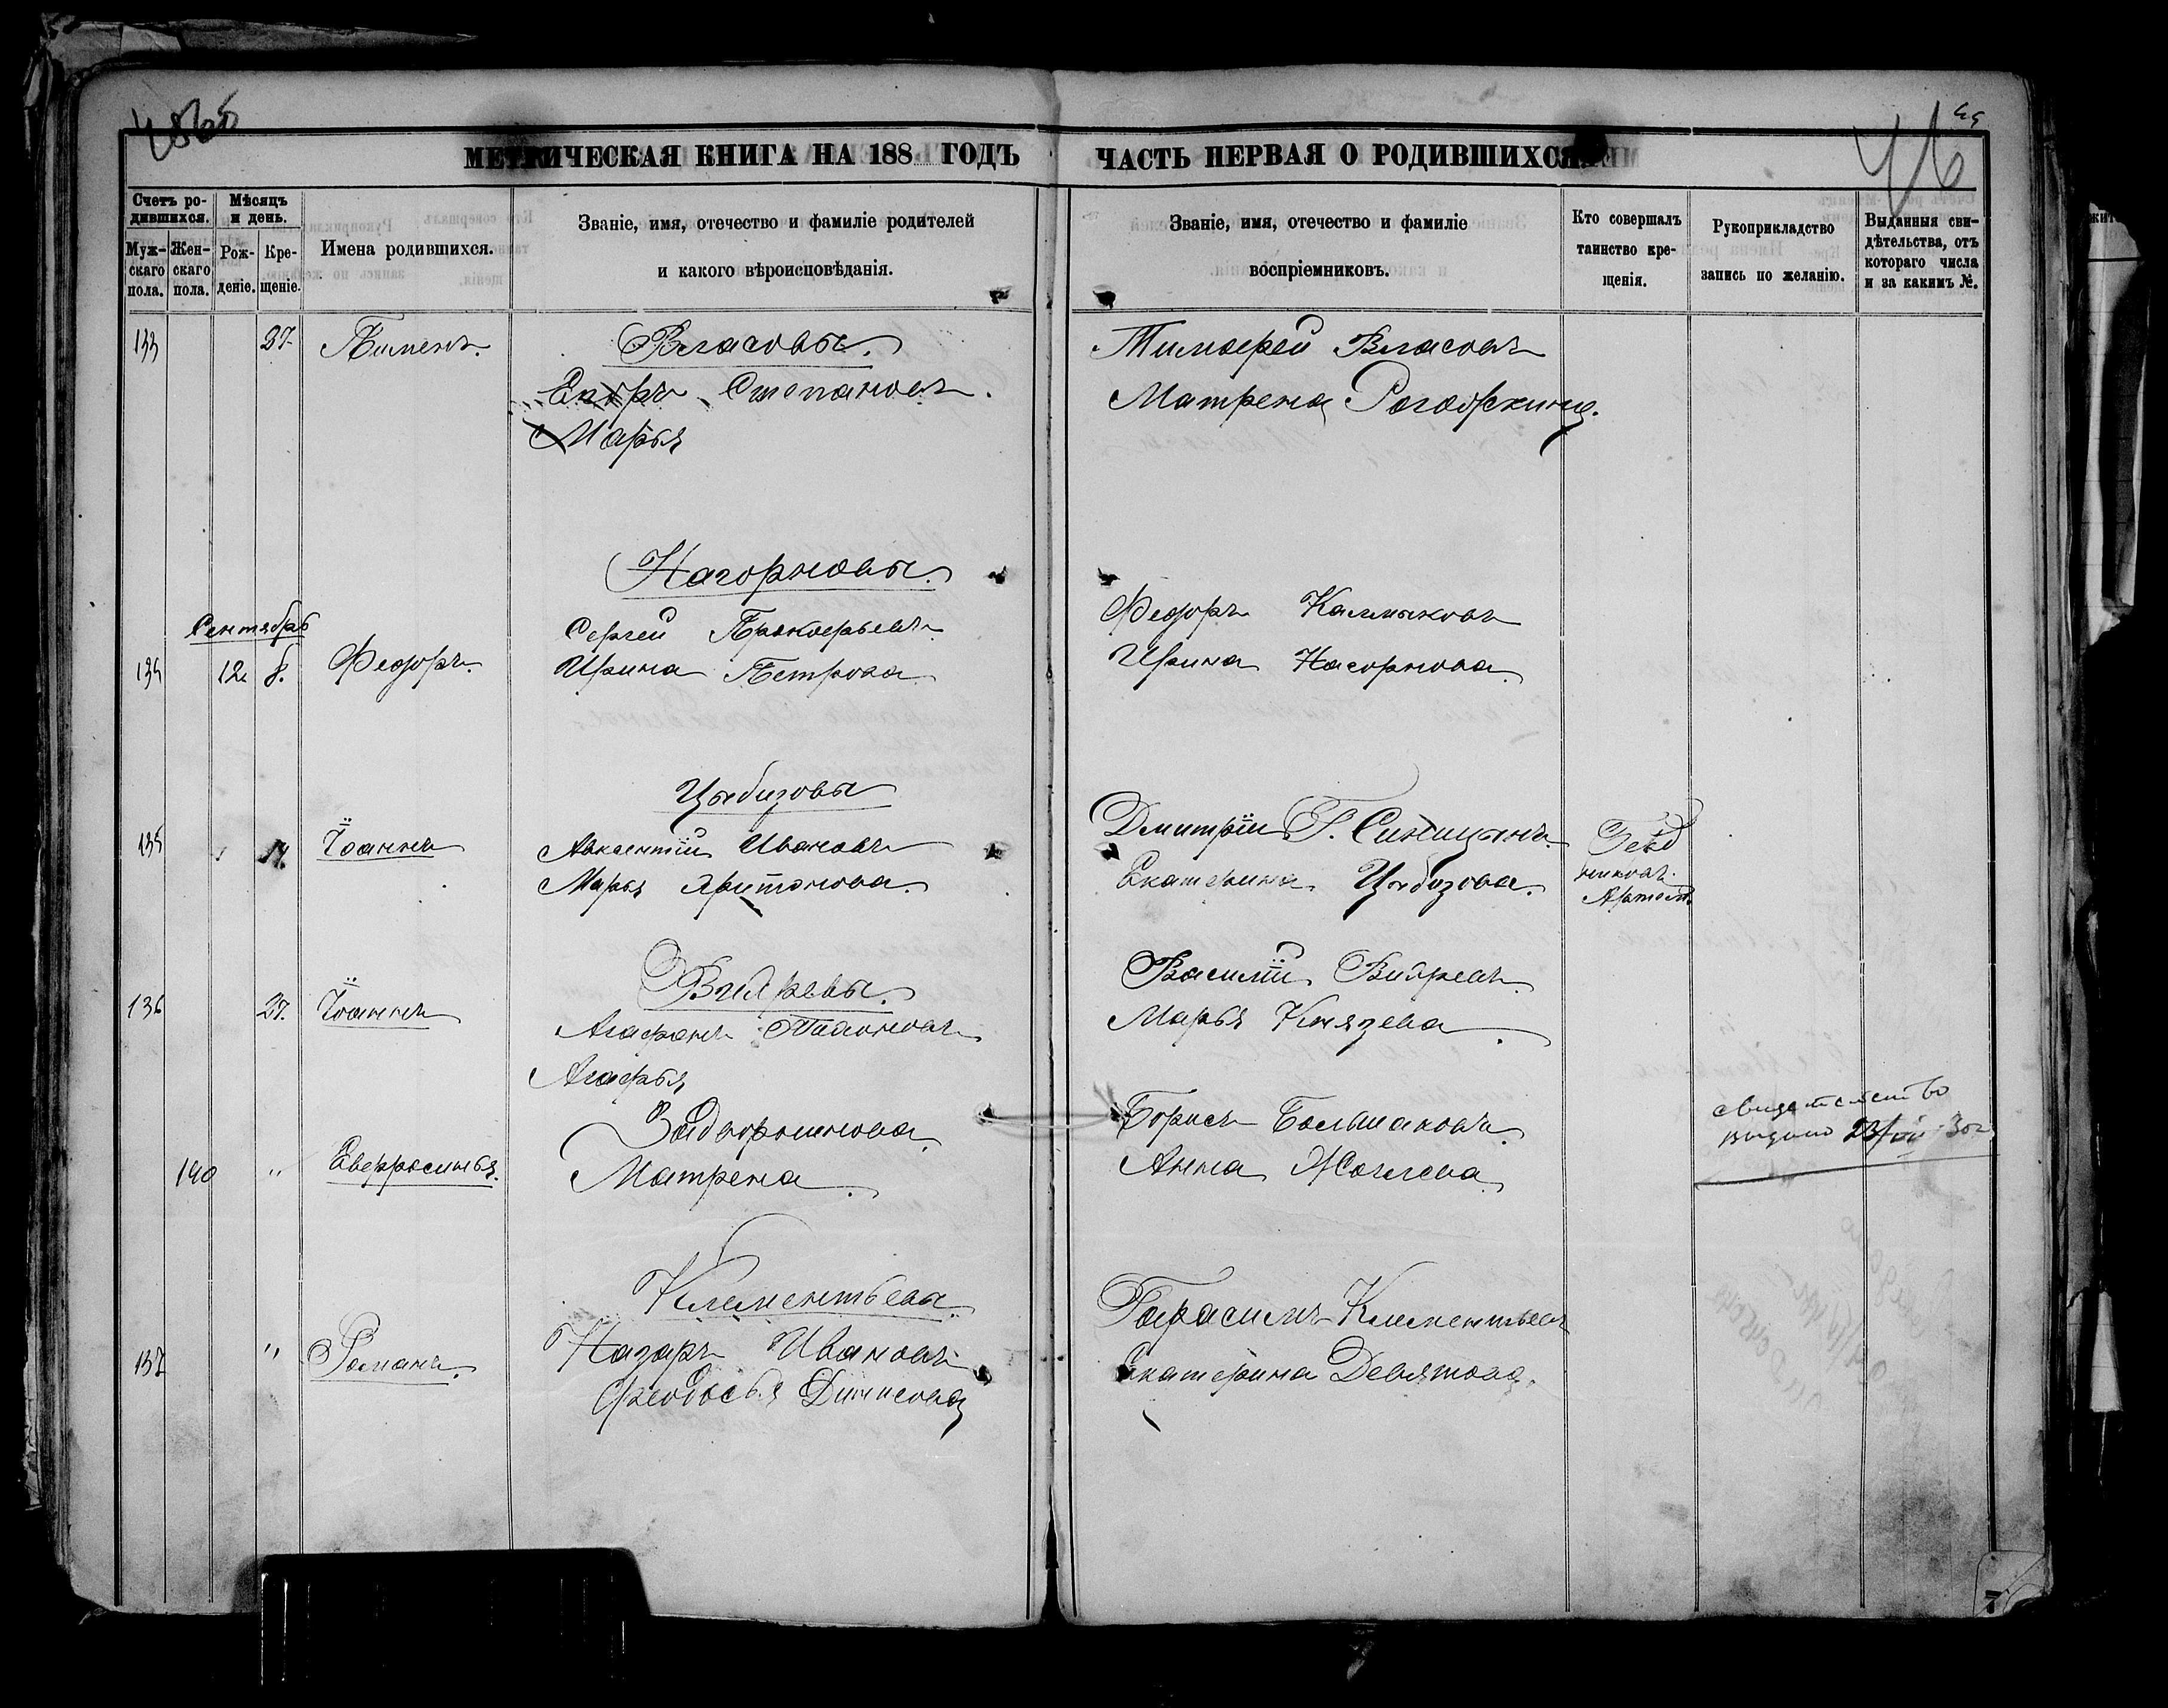 45
46
МЕТРИЧЕСКАЯ КНИГА НА 188 ГОДЪ
ЧАСТЬ ПЕРВАЯ О РОДИВШИХСЯ
Счетъ ро-
дившихся.
Мѣсяцъ
и день.
Муж-
скаго
пола.
Жен-
скаго
пола.
Рож-
деніе.
Кре-
щеніе.
Имена родившихся.
Званіе, имя, отечество и фамиліе родителей
и какого вѣроисповѣданія.
Званіе, имя, отечество и фамиліе
воспріемниковъ.
Кто совершалъ
таинство кре-
щенія.
Рукоприкладство
запись по желанію.
Выданныя сви-
дѣтельства, отъ
котораго числа
и за какимъ №.
133 27. Пименъ.
Власовы.
Егоръ Степановъ.
Марья
Тимофей Власовъ
Матрена
Нагорновы.
Сентябрь
134 12 8. Федоръ.
Сергей Прокофьевъ
Ирина Петрова
Федоръ Калмыковъ
Ирина Нагорнова
Цыбизовы
135 14. Іоаннъ
Авксентій Ивановъ
Марья Харитонова.
Дмитрій Г. Синицынъ
Екатерина Цыбизова.
136 27. Іоаннъ
Агафонъ
Агафья
Василій
Марья Князева
140 " Евфросинья.
Задворнинова
Матрена
Борисъ Большаковъ
Анна
свидетельство
выдано 23/VII 30 г.
Климентьевы
137 " Романъ.
Назаръ Ивановъ
Феодосья Динисова
Гарасимъ Климентьевъ
Екатерина Девятова.
7